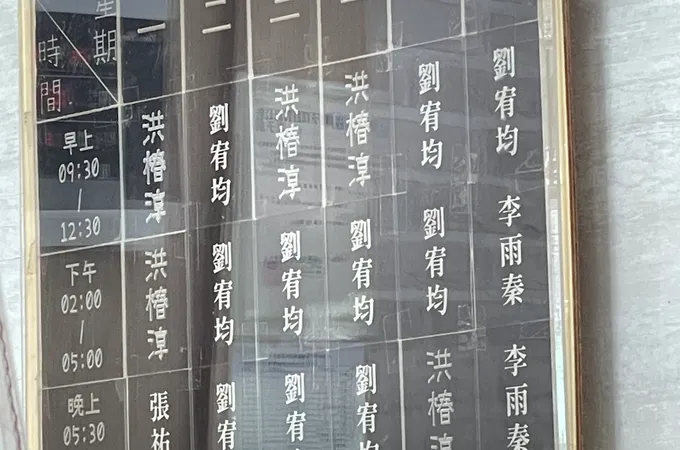 星期 一 二 三
時間
早上 09:30 / 12:30 洪椿淳 劉宥均 洪椿淳 洪椿淳 劉宥均 劉宥均
下午 02:00 / 05:00 洪椿淳 劉宥均 劉宥均 劉宥均 劉宥均 李雨蓁
晚上 05:30 張祐 劉宥 劉宥均 劉宥均 洪椿淳 李雨蓁